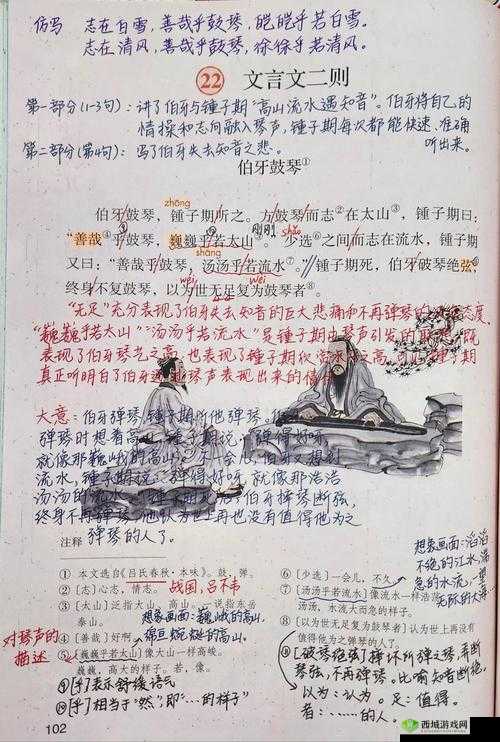 仿写 志在白雪,善哉乎鼓琴,皑皑乎若白雪。
志在清风,善哉乎鼓琴,徐徐乎若清风。
22 文言文二则
第一部分(1-3句):讲了伯牙与锺子期“高山流水遇知音”。伯牙将自己的
情操和志向融入琴声,锺子期每次都能快速、准确
听出来。
第二部分(第4句):写了伯牙失去知音之悲。
伯牙鼓琴①
zhōng
伯牙鼓琴,锺子期听之。方鼓琴而志②在太山③,锺子期曰:
刚刚 shǎo
“善哉④乎鼓琴,巍巍乎若太山⑤。”少选⑥之间而志在流水,锺子期
shāng
又曰:“善哉乎鼓琴,汤汤乎若流水⑦。”锺子期死,伯牙破琴绝弦,
wéi wèi
终身不复鼓琴,以为世无足复为鼓琴者⑧。
“无足”充分表现了伯牙失去知音的巨大悲痛和不再弹琴的 态度,
“巍巍乎若太山”“汤汤乎若流水”是锺子期由琴声引发的 既
表现了伯牙琴艺之高,也表现了锺子期 之高,
真正听明白了伯牙 琴声表现出来的情
大意:伯牙弹琴,锺子期听他弹琴。
弹琴时想着高 锺子期说:“弹得好呀,
就像那巍峨的高山。” 一会儿,伯牙又想到
流水,锺子期说:“弹得好呀,就像那浩浩
汤汤的流水。” 伯牙摔琴断弦,
终身不再弹琴,他认为世上再也没有值得他为之
弹琴的人了。
注释
① 本文选自《吕氏春秋·本味》。鼓,弹。
战国,吕不韦
② 〔志〕心志,情志。
③ 〔太山〕泛指大山、高山。一说指东岳
泰山。
想象画面:巍峨的高山,
绵亘蜿蜒的高山。
④ 〔善哉〕好啊。
⑤ 〔巍巍乎若太山〕像大山一样高峻。
巍巍,高大的样子。若,像。
对琴声的
描述
⑨〔乎〕表示舒缓语气
⑩〔乎〕相当于“然”,即“……的样子”
想象画面:滔滔
不绝的江水,湍
急的水流,一望
无际的大海
⑥ 〔少选〕一会儿,不久。
⑦ 〔汤汤乎若流水〕像流水一样浩浩
汤汤,水流大而急的样子。
⑧ 〔以为世无足复为鼓琴者〕认为世上再没有
值得他为之弹琴的人了。
〔破琴绝弦〕摔坏所弹之琴,弄断
琴弦,不再弹琴。比喻知者断绝,
以为:认为。足:值得。
者:……的人。
102
西城游戏网